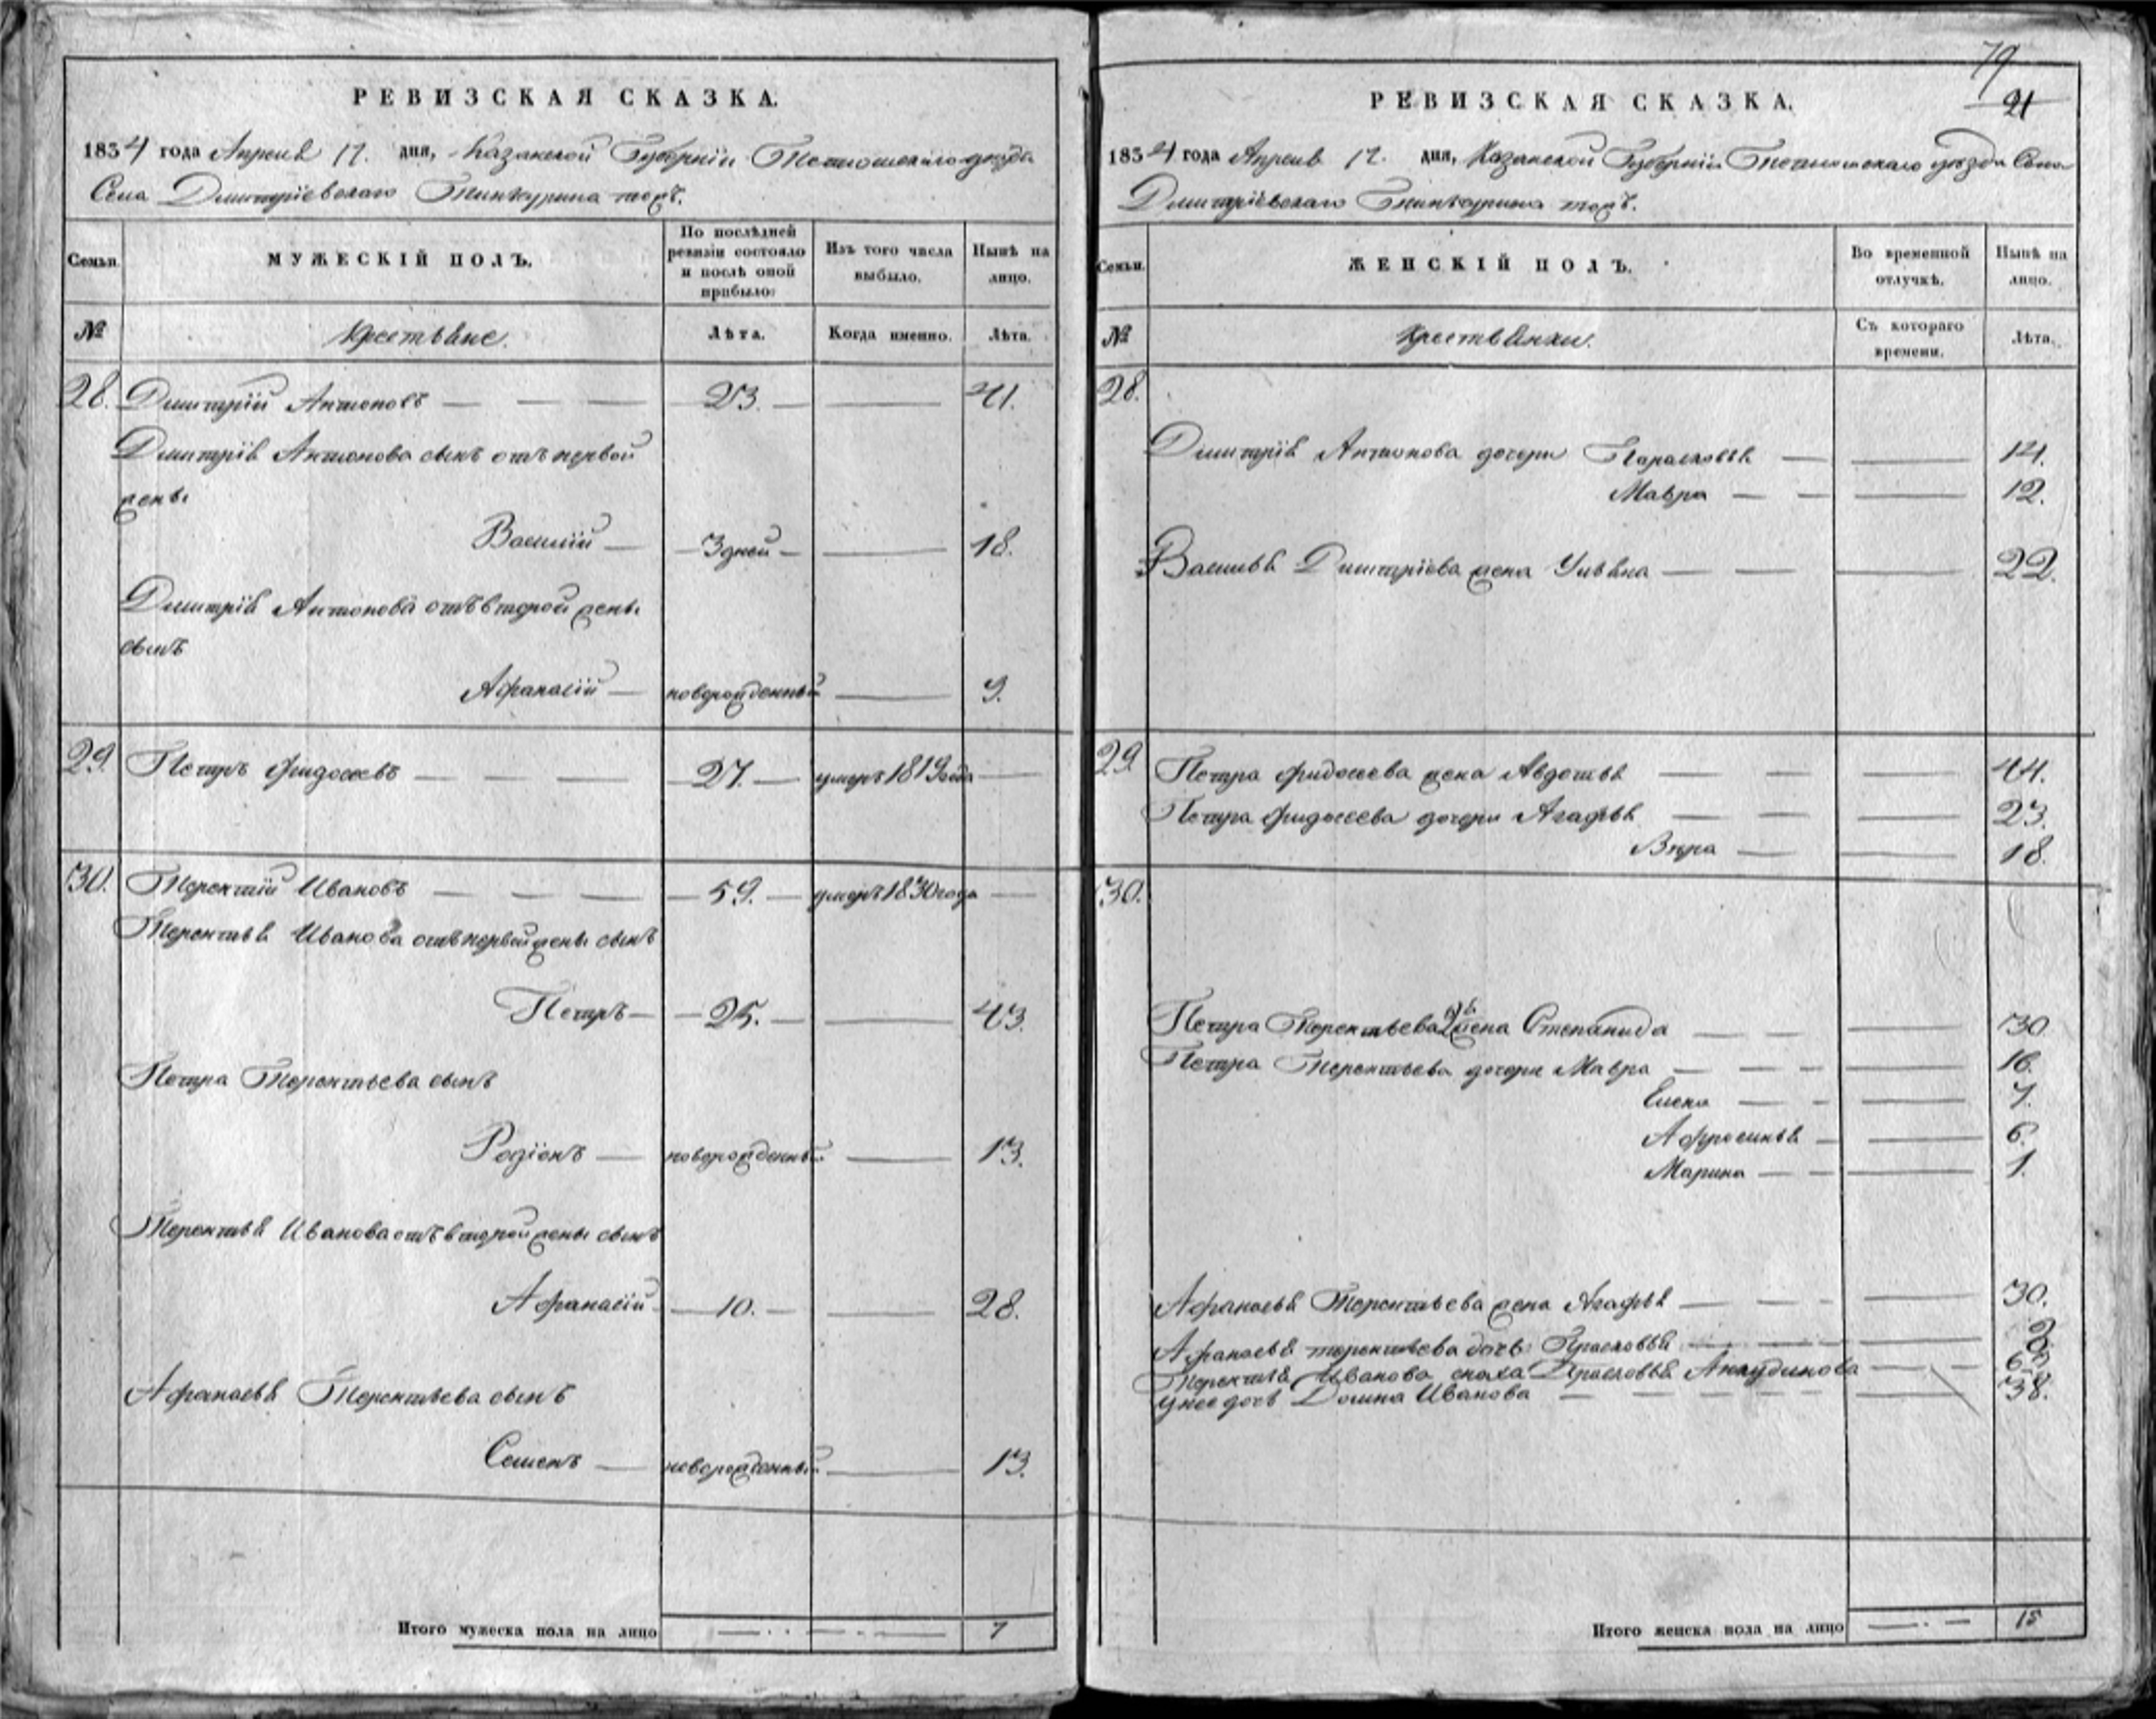 РЕВИЗСКАЯ СКАЗКА.
1834 года Апреля 17. дня, Казанской Губернiи Тетюшскаго уезда
Села Дмитрiевскаго Тинчурина тожъ.
Семьи. МУЖЕСКIЙ ПОЛЪ. По послѣдней ревизiи состояло и послѣ оной прибыло: Изъ того числа выбыло. Нынѣ на лицо.
№ Крестьяне. Лѣта. Когда именно. Лѣта.
28. Дмитрiй Антоновъ — 23. — 41.
Дмитрiя Антонова сынъ отъ первой
жены
Василiй — 3 дней — 18.
Дмитрiя Антонова отъ второй жены
сынъ
Афанасiй — новорожденный — 9.
29. Петръ Фидосеевъ — 27. — умеръ 1819 года —
30. Терентiй Ивановъ — 59. — умеръ 1830 года —
Терентья Иванова отъ первой жены сынъ
Петръ — 25. — 43.
Петра Терентьева сынъ
Родiонъ — новорожденный — 13.
Терентья Иванова отъ второй жены сынъ
Афанасiй — 10. — 28.
Афанасья Терентьева сынъ
Семенъ — новорожденный — 13.
Итого мужеска пола на лицо — 7
79
21
РЕВИЗСКАЯ СКАЗКА.
1834 года Апреля 17. дня, Казанской Губернiи Тетюшскаго уезда Села
Дмитрiевскаго Тинчурина тожъ.
Семьи. ЖЕНСКIЙ ПОЛЪ. Во временной отлучкѣ. Нынѣ на лицо.
№ Крестьянки. Съ котораго времени. Лѣта.
28.
Дмитрiя Антонова дочери Парасковья — 14.
Мавра — 12.
Василья Дмитрiева жена Ульяна — 22.
29. Петра Фидосеева жена Авдотья — 44.
Петра Фидосеева дочери Агафья — 23.
Вера — 18.
30.
Петра Терентьева 2я жена Степанида — 30
Петра Терентьева дочери Мавра — 16.
Елена — 7.
Афросинья — 6.
Марина — 1.
Афанасья Терентьева жена Агафья — 30.
Афанасья терентьева дочь Прасковья — 2
Терентья Иванова сноха Прасковья Анкудинова —
у нее дочь Домна Иванова — 38.
Итого женска пола на лицо — 15